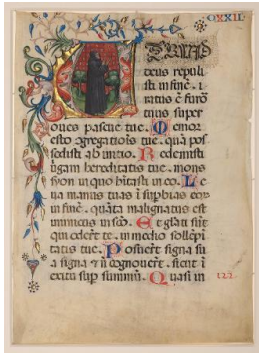 CXXII
deus repuli
sti in finē · i
ratus ē furor
tuus super
oues pascue tue · Memor
esto ɔgregatiōis tue · quā pos
sedisti ab initio · Redemisti
uirgam hereditatis tue · mons
syon in quo hītasti in eo · Le
ua manus tuas ī supbias eoȝ
in finē · quāta malignatus est
inimicus in sc̄o · Et glāti sūt
qui oderūt te · in medio sollēpi
tatis tue · Posuerūt signa su
a signa ⁊ nō cognouerūt · sicut ī
exitu sup summū · Quasi in
122